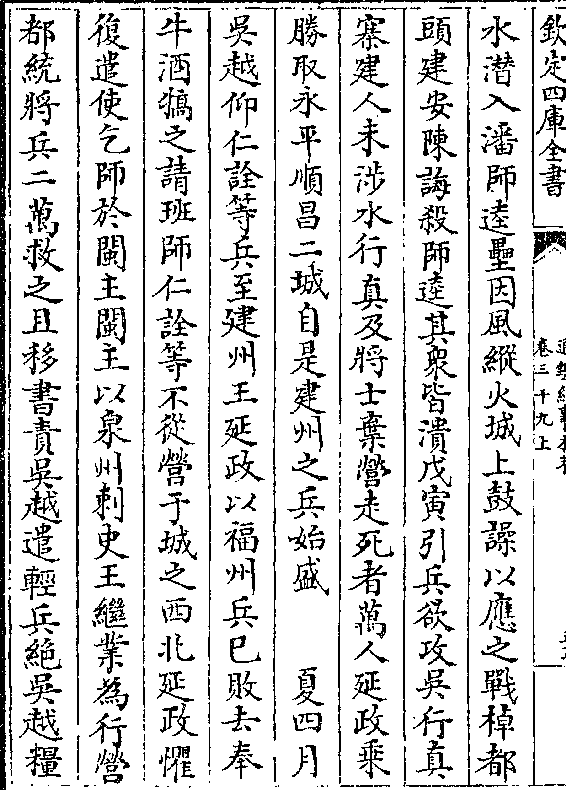 欽定四庫全書
卷三十九上
水潛入潘師逵壘因風縱火城上鼓譟以應之戰棹都
頭建安陳誨殺師逵其衆皆潰戊寅引兵欲攻吳行真
寨建人未涉水行真及將士棄營走死者萬人延政乘
勝取永平順昌二城自是建州之兵始盛　夏四月
吳越仰仁詮等兵至建州王延政以福州兵已敗去奉
牛酒犒之請班師仁詮等不從營于城之西北延政懼
復遣使乞師於閩主閩主以泉州刺史王繼業為行營
都統將兵二萬救之且移書責吳越遣輕兵絶吳越糧